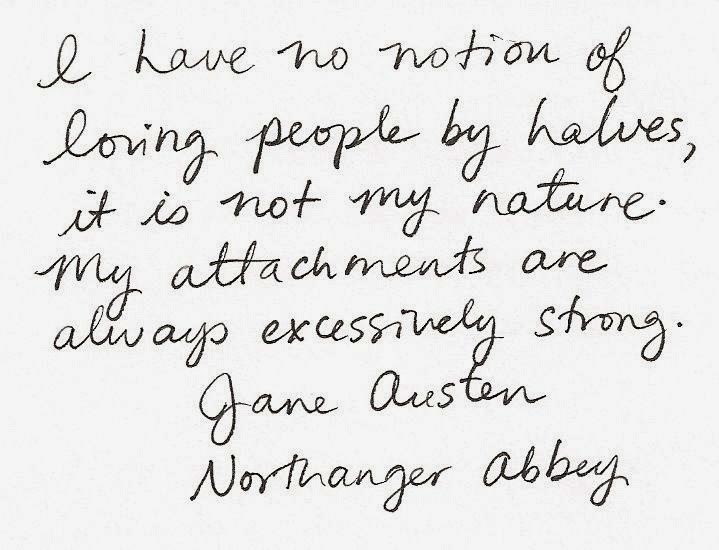 I have no notion of
loving people by halves,
it is not my nature.
My attachments are
always excessively strong.
Jane Austen
Northanger Abbey